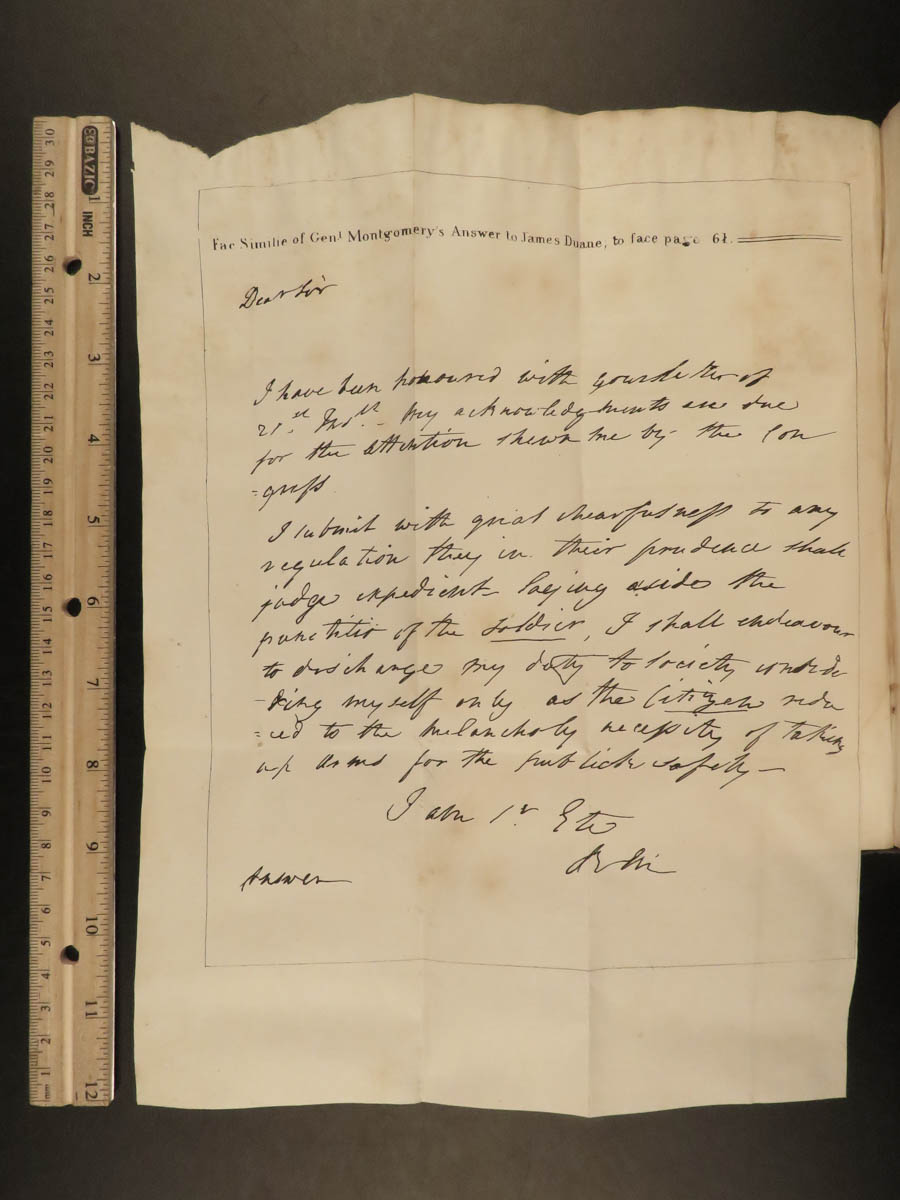 Fac Simile of Genl Montgomery's Answer to James Duane, to face page 61.
Dear Sir
I have been honoured with your letter of
21.st Inst. - My acknowledgments are due
for the attention shewn me by the Con
=gress
I submit with great chearfulness to any
regulation they in their prudence shall
judge expedient laying aside the
punctilio of the soldier, I shall endeavour
to discharge my duty to society conside
-ring myself only as the Citizen redu
=ced to the melancholy necessity of taking
up arms for the publick safety—
I am Sr. Etc
Answer
COBAZIC
INCH
1
2
3
4
5
6
7
8
9
10
11
12
30
29
28
27
26
25
24
23
22
21
20
19
18
17
16
15
14
13
12
11
10
9
8
7
6
5
4
3
2
1